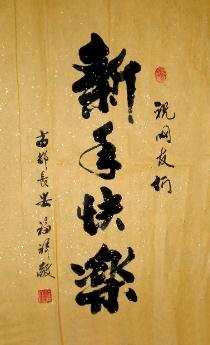 祝网友们
新年快樂
古都長安福祥敬